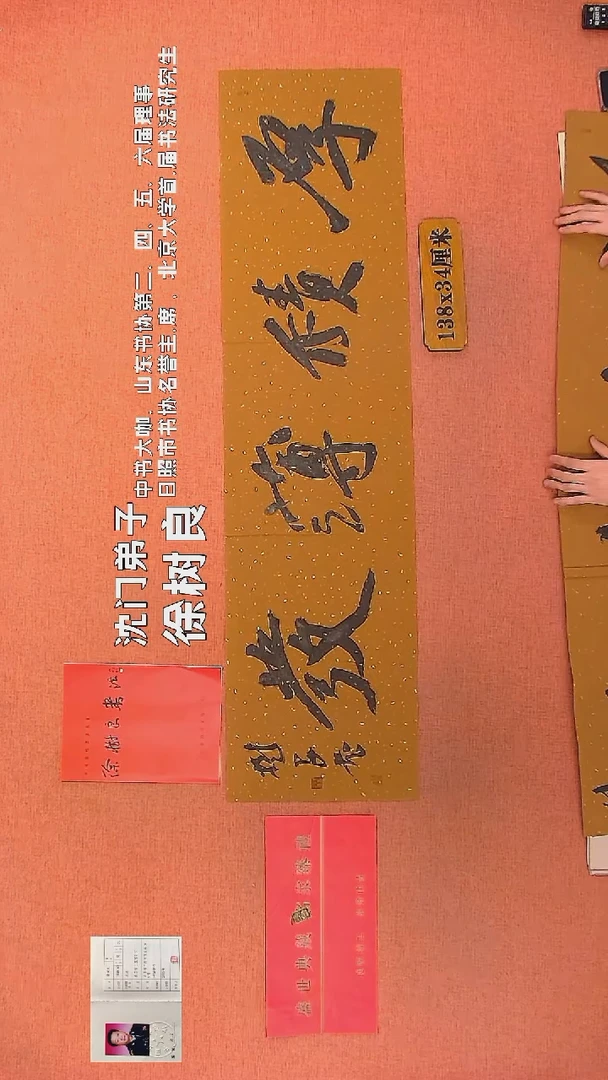 沈门弟子
中书大咖，山东书协第二、四、五、六届理事
徐树良
日照市书协名誉主席，北京大学首届书法研究生
徐樹良書法
厚積薄發
樹良書
138x34厘米
盛世典藏